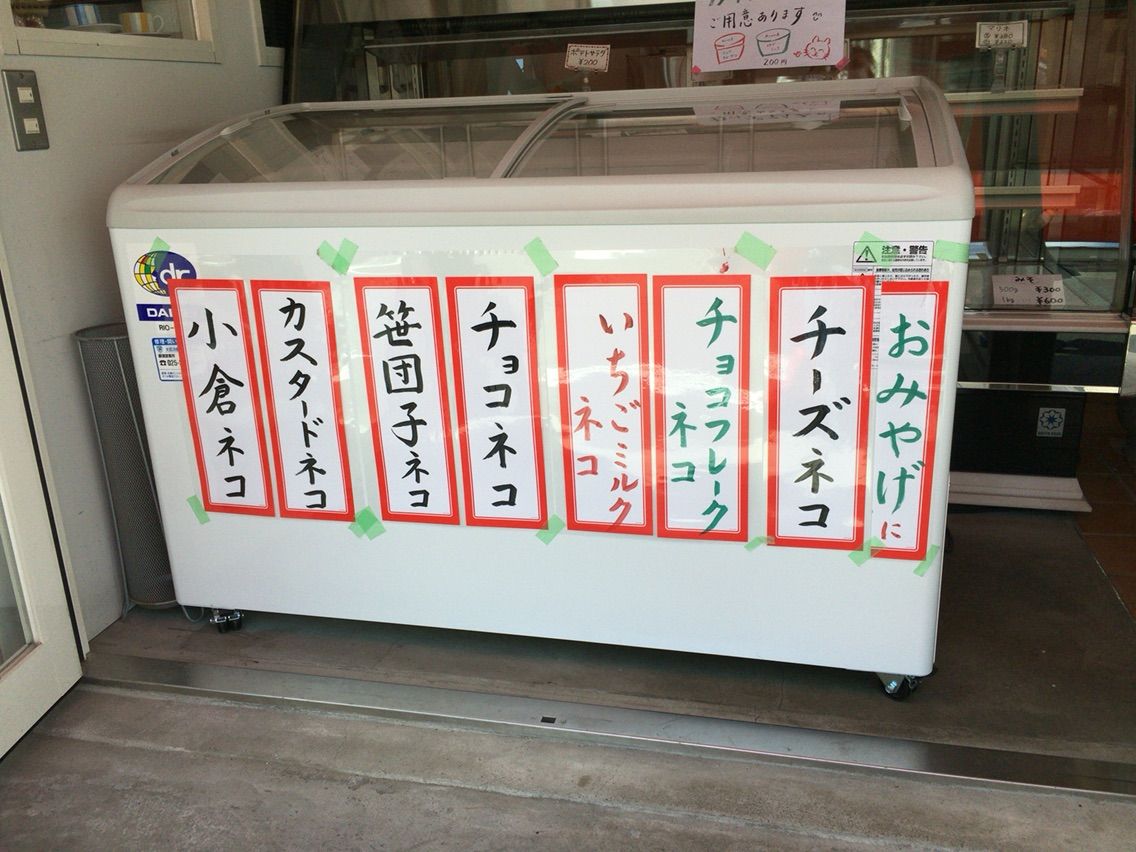 ご用意あります
200円
ポテトサラダ
¥200
みそ
500g ¥300
1kg ¥600
注意・警告
dr
おみやげに
チーズネコ
チョコフレーク
ネコ
いちごミルク
ネコ
チョコネコ
笹団子ネコ
カスタードネコ
小倉ネコ